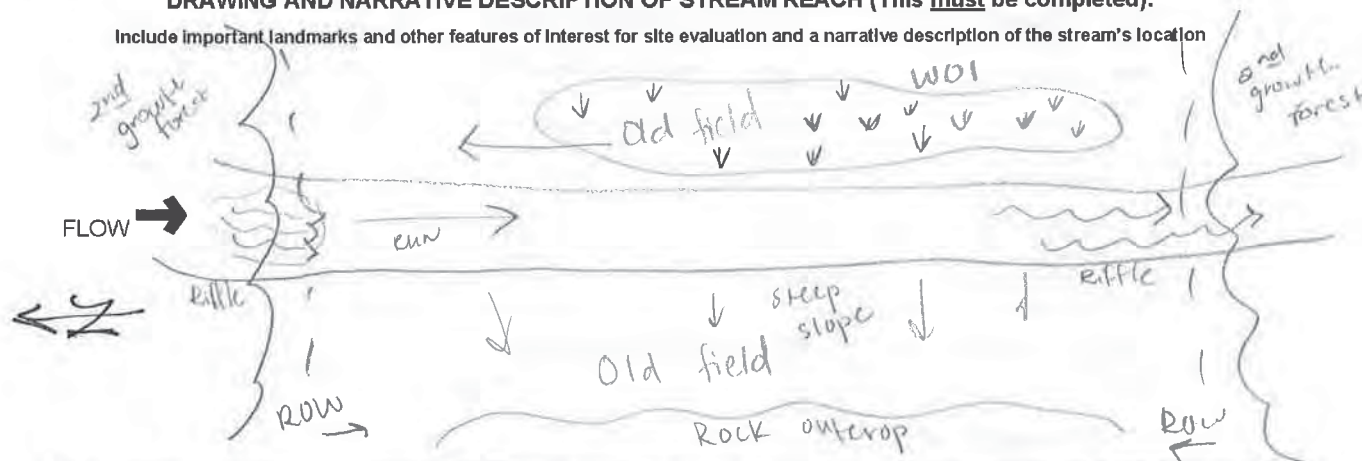 DRAWING AND NARRATIVE DESCRIPTION OF STREAM REACH (This must be completed):
Include important landmarks and other features of interest for site evaluation and a narrative description of the stream's location
2nd
growth
forest
W01
Old field
2nd
growth
forest
FLOW
run
Riffle
Riffle
N
steep
slope
Old field
ROW
Rock outcrop
ROW